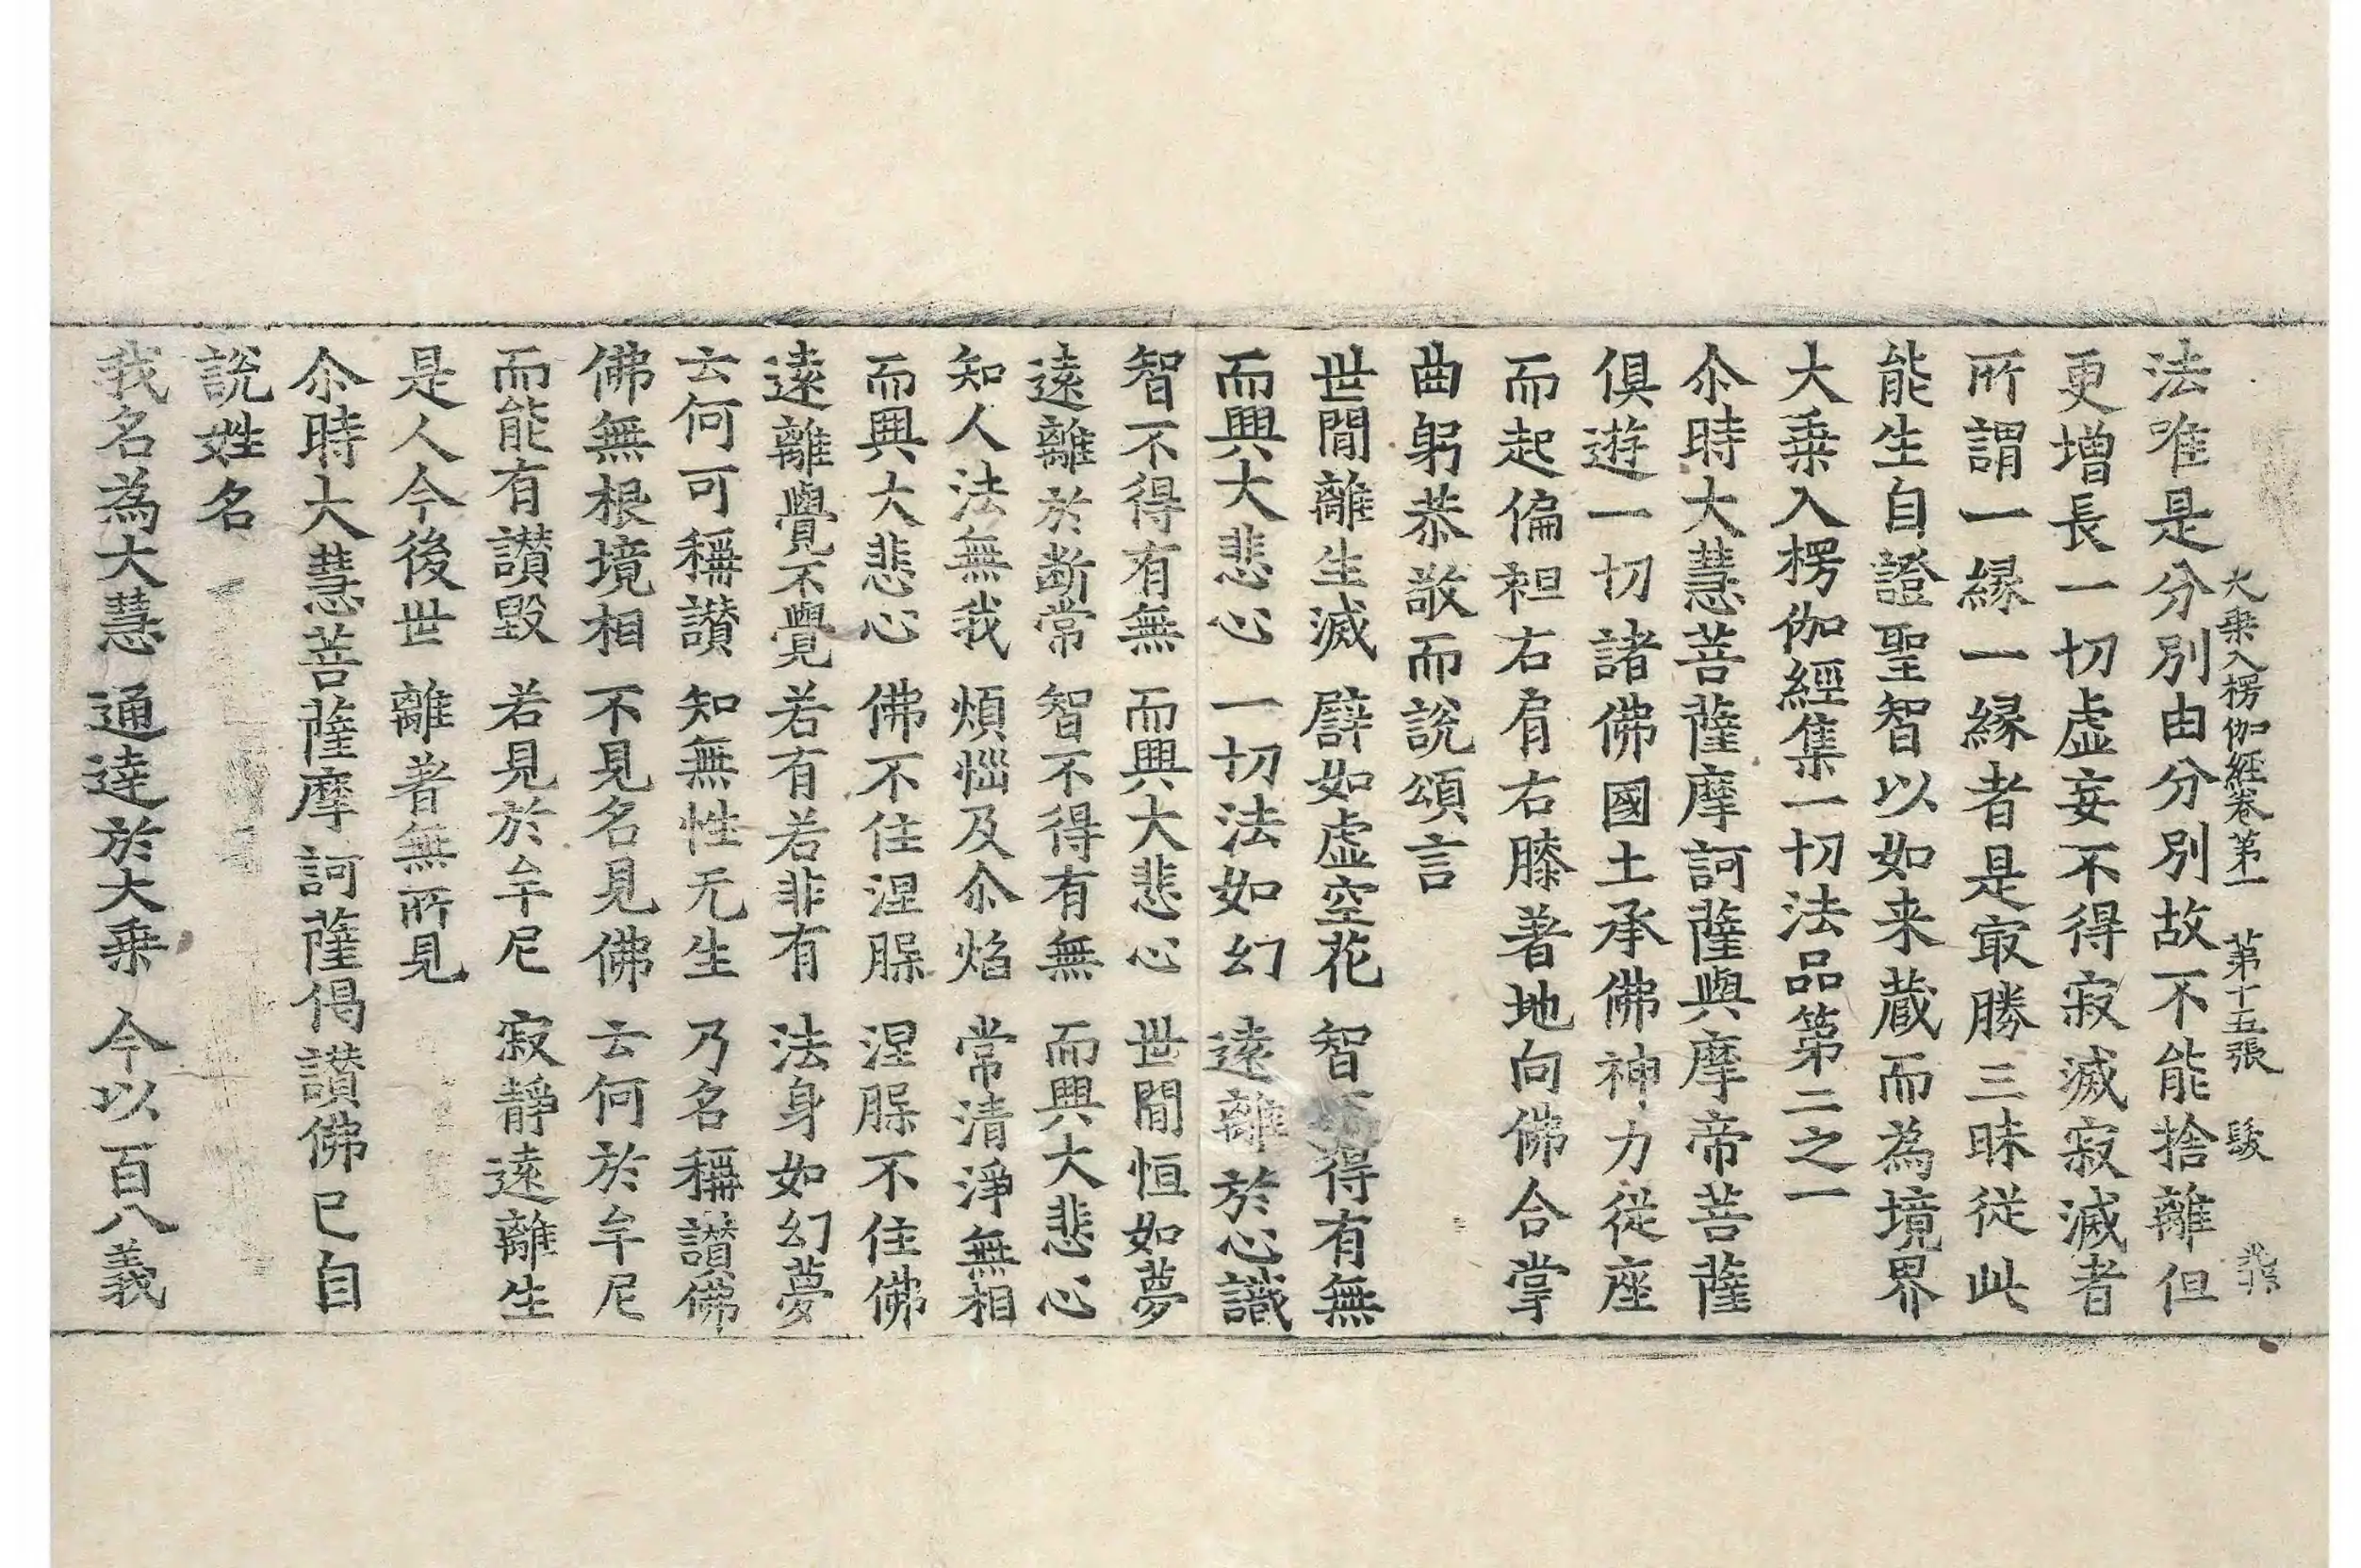 大乗入楞伽經卷第一 第十五張 髮
法唯是分別由分別故不能捨離但
更增長一切虛妄不得寂滅寂滅者
所謂一縁一縁者是㝡勝三昧従此
能生自證聖智以如来蔵而為境界
大乗入楞伽經集一切法品第二之一
尒時大慧菩薩摩訶薩與摩帝菩薩
俱遊一切諸佛國土承佛神力従座
而起偏袒右肩右膝著地向佛合掌
曲躬恭敬而說頌言
世間離生滅 譬如虛空花 智得有無
而興大悲心 一切法如幻 遠離於心識
智不得有無 而興大悲心 世間恒如夢
遠離於断常 智不得有無 而興大悲心
知人法無我 煩惱及尒焰 常清淨無相
而興大悲心 佛不住涅槃 涅槃不住佛
遠離覺不覺 若有若非有 法身如幻夢
云何可稱讃 知無性无生 乃名稱讃佛
佛無根境相 不見名見佛 云何於牟尼
而能有讃毀 若見於牟尼 寂靜遠離生
是人今後世 離著無所見
尒時大慧菩薩摩訶薩偈讃佛已自
說姓名
我名為大慧 通達於大乗 今以百八義